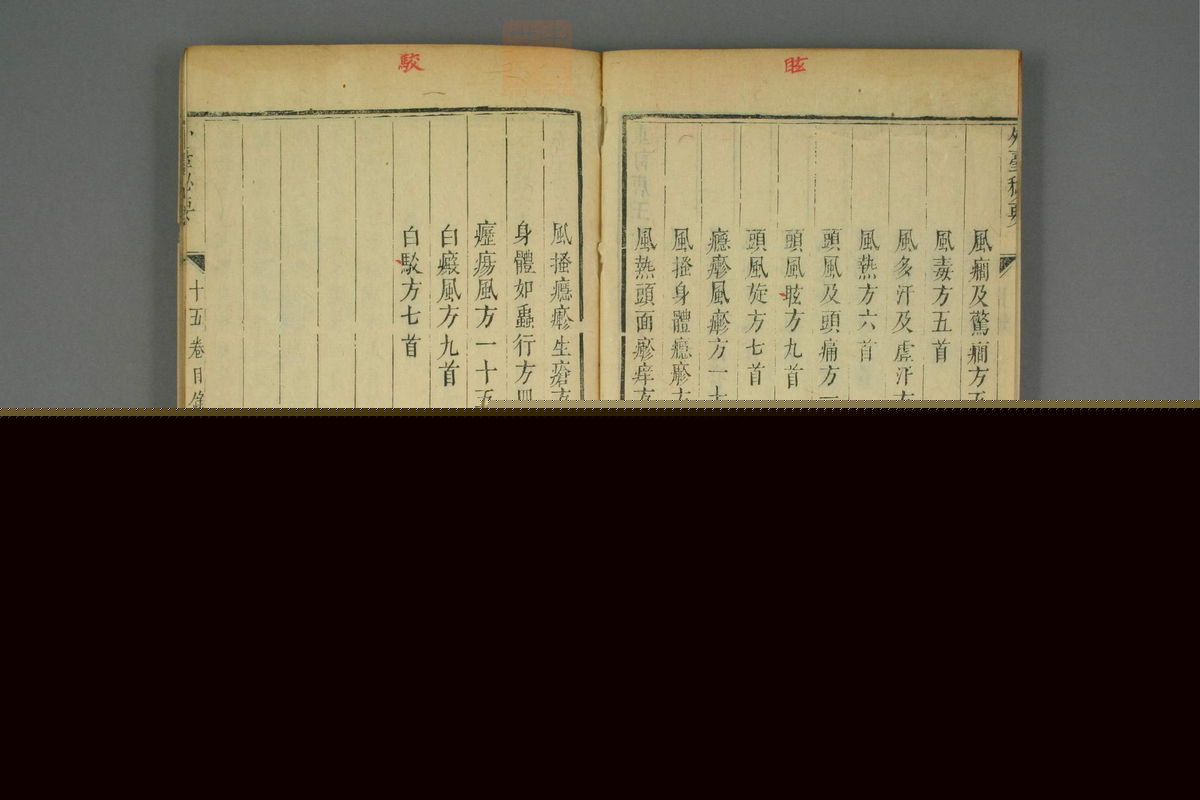 眩
外臺秘要
風癎及驚癎方五
風毒方五首
風多汗及虛汗方
風熱方六首
頭風及頭痛方一
頭風眩方九首
頭風旋方七首
癮瘮風瘮方一十
風搔身體癮瘮方
風熱頭面瘮痒方
駮
風搔癮瘮生瘡方
身體如蟲行方四
癧瘍風方一十五
白癜風方九首
白駮方七首
十五卷目錄